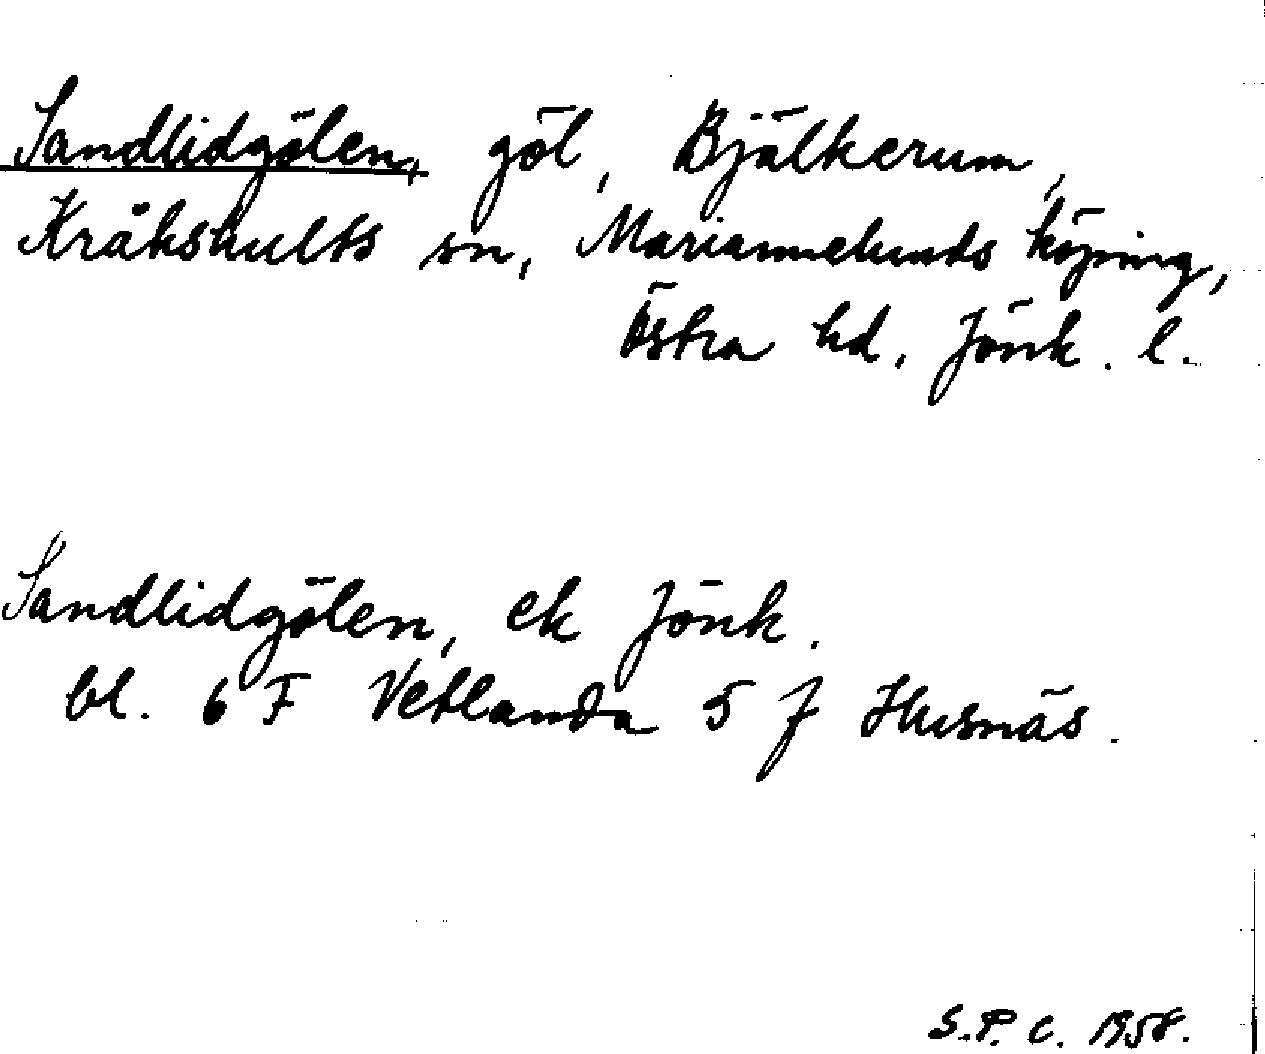 Sandlidgölen, göl, Bjälkerum,
Kråkshults sn, Mariannelunds köping,
Östra hd. Jönk. l.
Sandlidgölen, ek Jönk.
bl. 6 F Vetlanda 5 J Husnäs.
S.P.C. 1958.